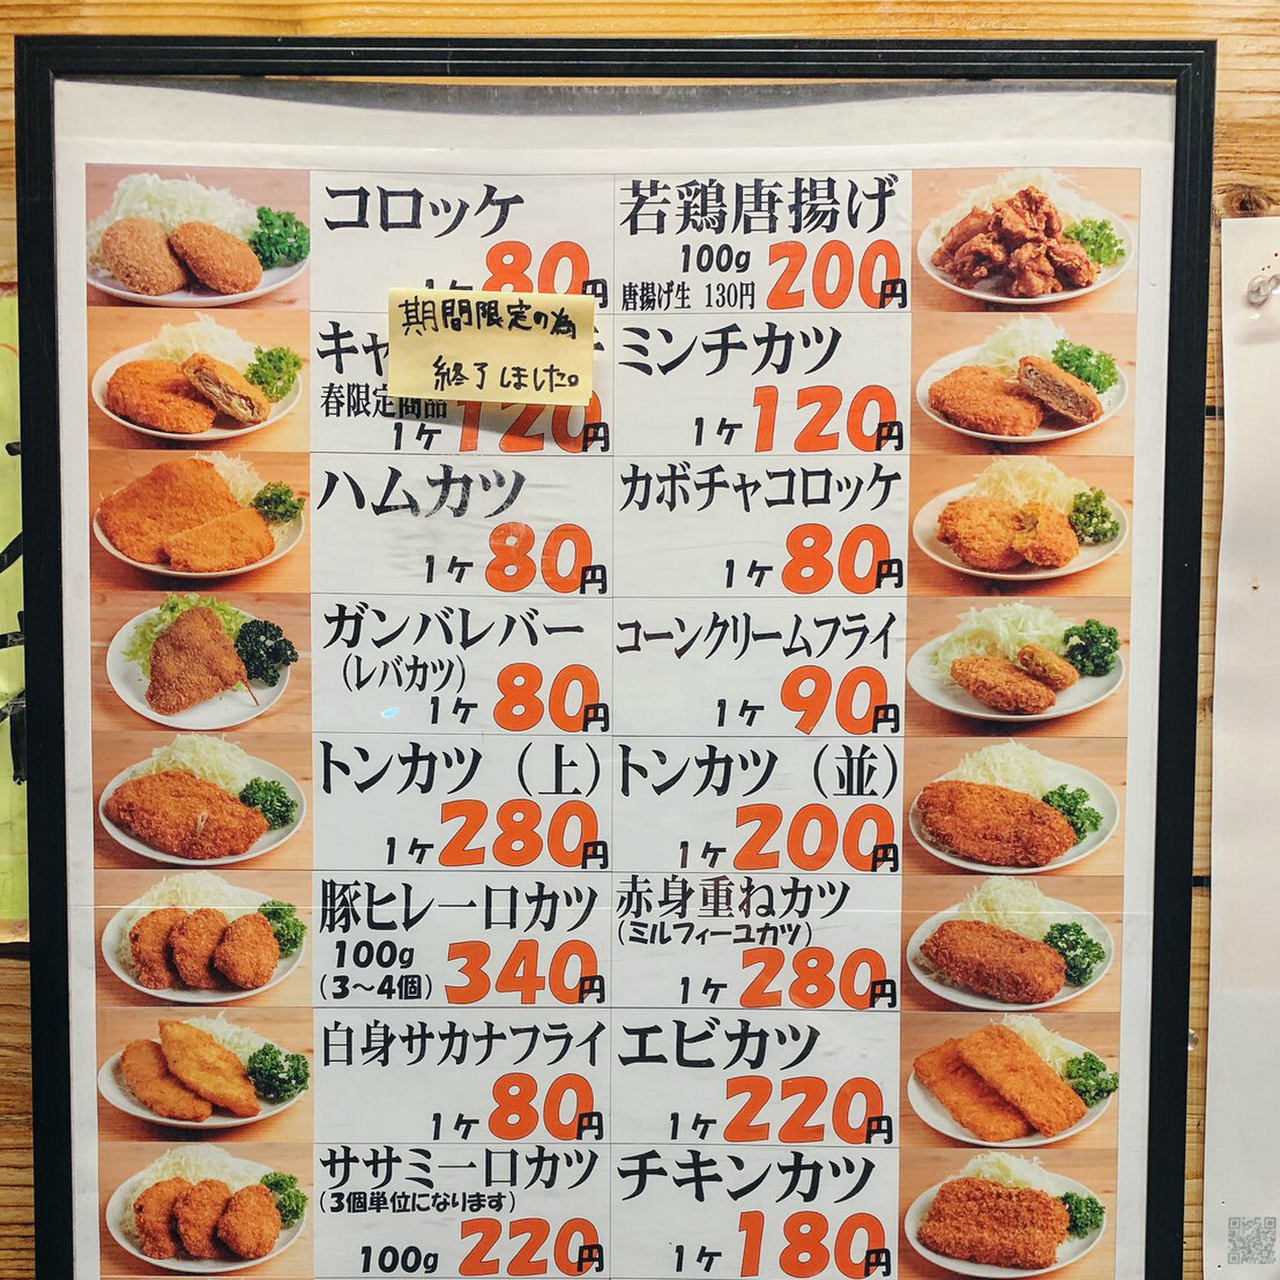 コロッケ
1ケ 80円
若鶏唐揚げ
100g 200円
唐揚げ生 130円
期間限定の為
終了しました。
キャ
春限定商品
1ケ 120円
ミンチカツ
1ケ 120円
ハムカツ
1ケ 80円
カボチャコロッケ
1ケ 80円
ガンバレバー
(レバカツ)
1ケ 80円
コーンクリームフライ
1ケ 90円
トンカツ(上)
1ケ 280円
トンカツ(並)
1ケ 200円
豚ヒレ一口カツ
100g
(3〜4個) 340円
赤身重ねカツ
(ミルフィーユカツ)
1ケ 280円
白身サカナフライ
1ケ 80円
エビカツ
1ケ 220円
ササミ一口カツ
(3個単位になります)
100g 220円
チキンカツ
1ケ 180円